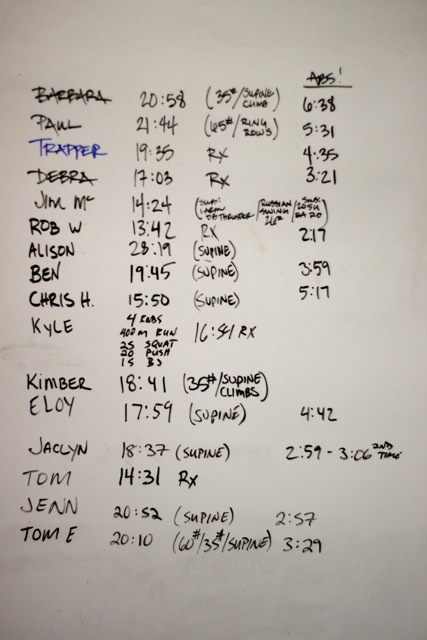 ABS!
BARBARA 20:58 (35#/SUPINE CLIMB) 6:38
PAUL 21:44 (65#/RING ROWS) 5:31
TRAPPER 19:35 RX 4:35
DEBRA 17:03 RX 3:21
JIM Mc 14:24 (SUB: 1 ARM DB THRUSTER/RUSSIAN SWING
ROB W 13:42 RX 2:17
ALISON 23:19 (SUPINE)
BEN 19:45 (SUPINE) 3:59
CHRIS H. 15:50 (SUPINE) 5:17
KYLE 4 RNDS 16:54 RX
400M RUN
25 SQUAT
20 PUSH
15 BJ
KIMBER 18:41 (35#/SUPINE CLIMBS)
ELOY 17:59 (SUPINE) 4:42
JACLYN 18:37 (SUPINE) 2:59 - 3:06 2ND TIME
TOM 14:31 Rx
JENN 20:52 (SUPINE) 2:57
TOM E 20:10 (60#/35#/SUPINE) 3:29